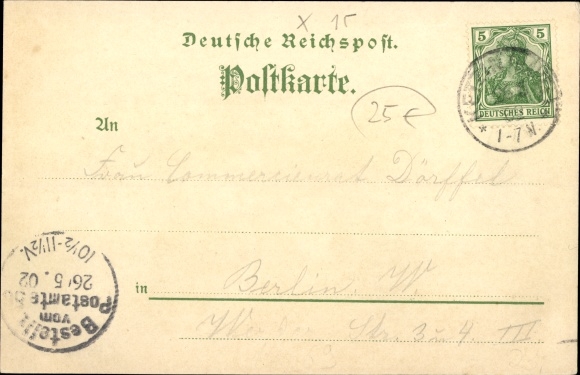 x 15
Deutsche Reichspost.
Postkarte.
5 5
DEUTSCHES REICH
* 1-7 N.
25€
An
Frau Commercienrat Dörffel
in Berlin. W.
Str. 3 u 4. III
Bestellt
vom
Postamte
26/5. 02
10½-11½V.